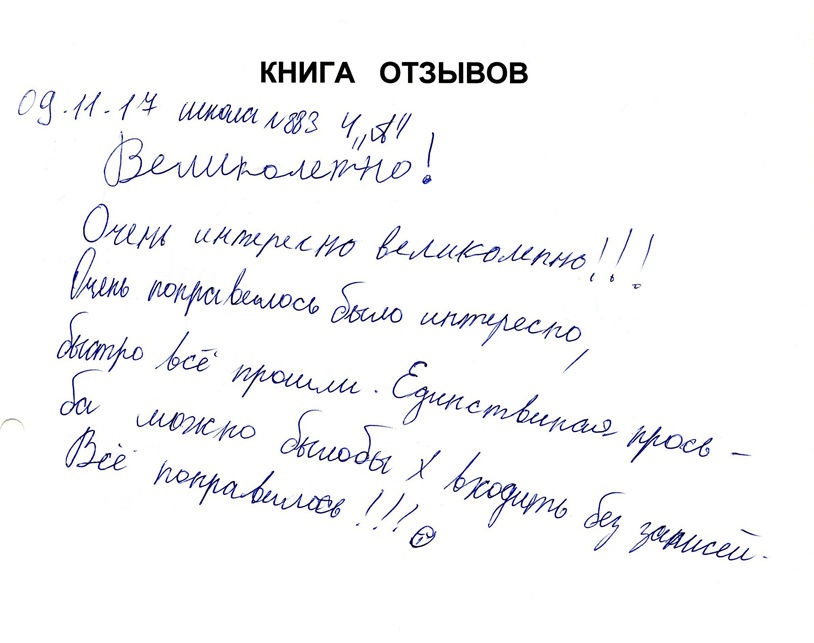 КНИГА ОТЗЫВОВ
09.11.17 школа №883 4 "А"
Великолепно!
Очень интересно великолепно!!!
Очень поправелось было интересно,
быстро всё прошли. Единственая прось-
ба можно былобы входить без записей.
Всё поправелось!!!